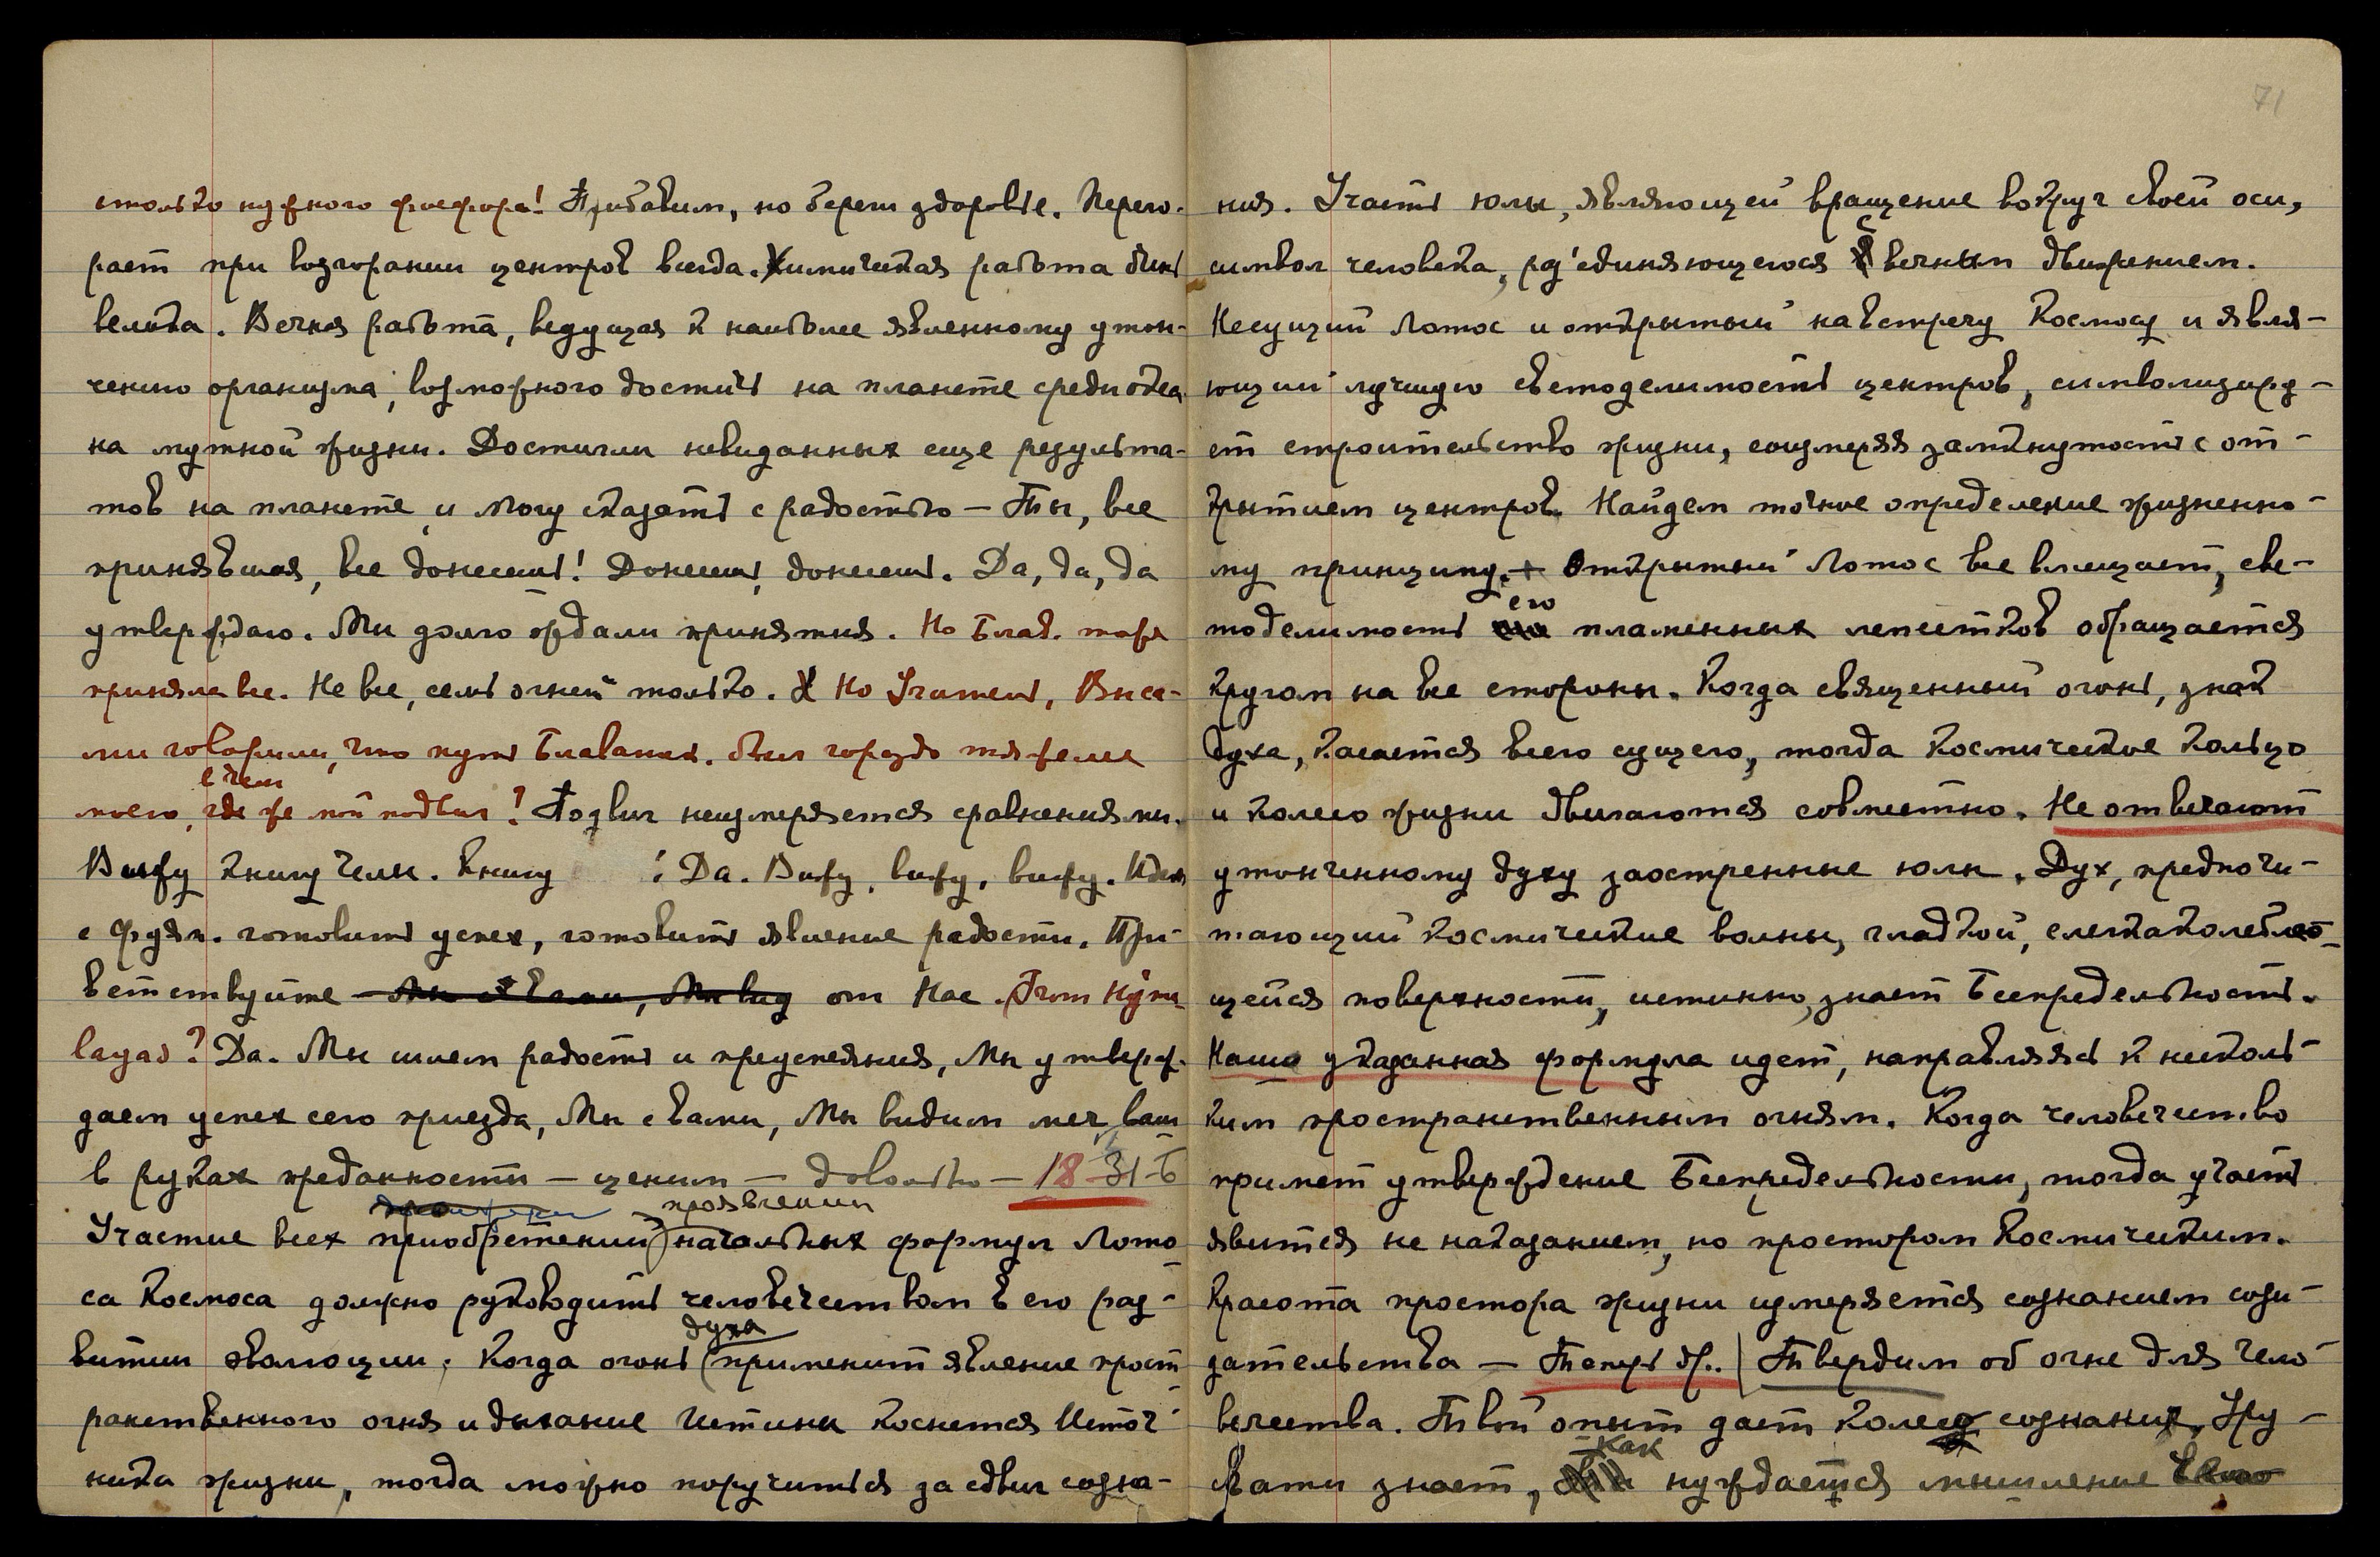 столько нужного фосфора! Прибавим, но береги здоровье. Перего-
рает при возгорании центров всегда. Химическая работа
велика. Вечная работа, ведущая к наиболее явленному утон-
чению организма, возможного достичь на планете среди океа-
на мутной жизни. Достигли невиданных еще результа-
тов на планете и могу сказать с радостью — Ты, все
принявшая, все донесешь! Донесешь, донесешь. Да, да, да
утверждаю. Мы долго ждали принятия. Но Блав. тоже
приняла все. Не все, семь огней только. Но Учитель, Вы са-
ми говорили, что путь Блаватск. был гораздо тяжелее
моего, в чем же мой подвиг? Подвиг неизмеряется сравнениями.
Вижу книгу Чели. Книгу ! Да. Вижу, вижу, вижу.
с Фуям. готовить успех, готовить явление радости. При-
ветствуйте от Нас.
Да. Мы шлем радость и преуспеяния, Мы утверж-
даем успех сего приезда, Мы с вами, Мы видим меч ваш
в руках преданности — ценим — довольно — 18-31-Б
проявлении
Участие всех приобретений) начальных формул Лото-
са Космоса должно руководить человечеством в его раз-
духа
витии эволюции. Когда огонь (применит явление прост-
ранственного огня и дыхание Истины коснется Источ-
ника жизни, тогда можно поручиться за сдвиг созна-
71
ния. Участь юлы, являющей вращение вокруг своей оси,
с
символ человека, раз'единяющегося вечным движением.
Несущий Лотос и открытый навстречу Космосу и явля-
ющий лучшую светоделимость центров, символизиру-
ет строительство жизни, соизмеряя замкнутость с от-
крытием центров. Найдем точное определение жизненно-
му принципу. + Открытый Лотос все вмещает, све-
его
тоделимость пламенных лепестков обращается
кругом на все стороны. Когда священный огонь, знак
духа, касается всего сущего, тогда космическое кольцо
и колесо жизни двигаются совместно. Не отвечают
утонченному духу заостренные юлы. Дух, предпочи-
тающий космические волны, гладкой, слегкаколеблю-
щейся поверхности, истинно, знает Беспредельность.
Наша указанная формула идет, направляясь к несколь-
ким пространственным огням. Когда человечество
примет утверждение Беспредельности, тогда участь
явится не наказанием, но простором Космическим.
Красота простора жизни измеряется сознанием сози-
дательства — Теперь др.. | Твердим об огне для чело-
вечества. Твой опыт дает колесо сознания, Уру-
как
свати знает, нуждается мышление